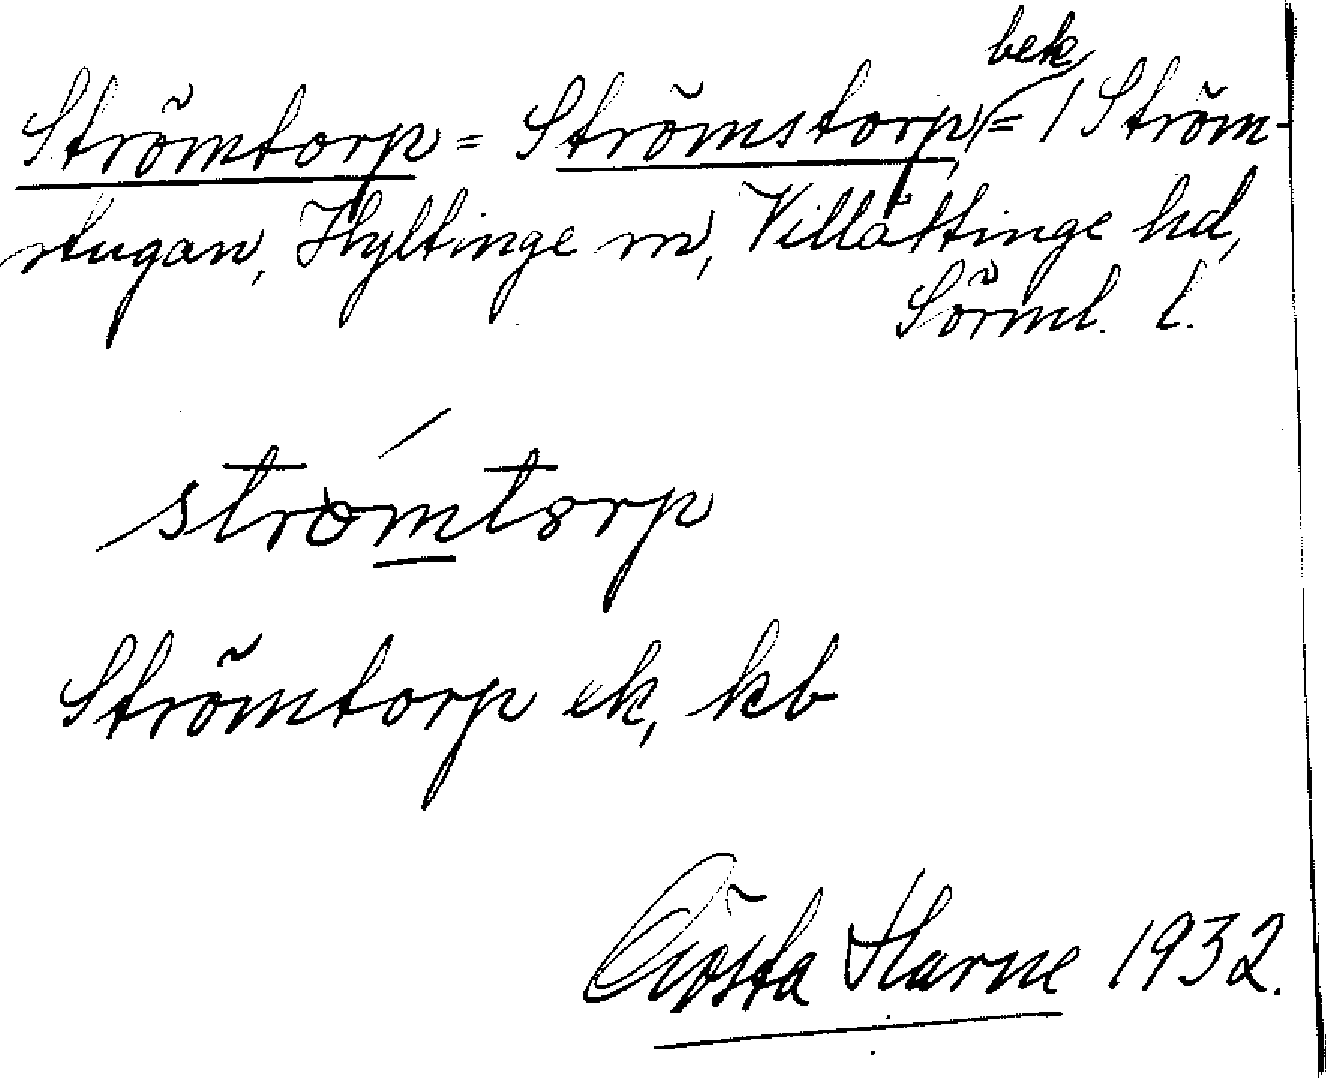 bek
Strömtorp = Strömstorp, = / Ström-
stugan, Hyltinge sn, Villåttinge hd,
Sörml. l.
strömtorp
Strömtorp ek, kb
Gösta Harne 1932.